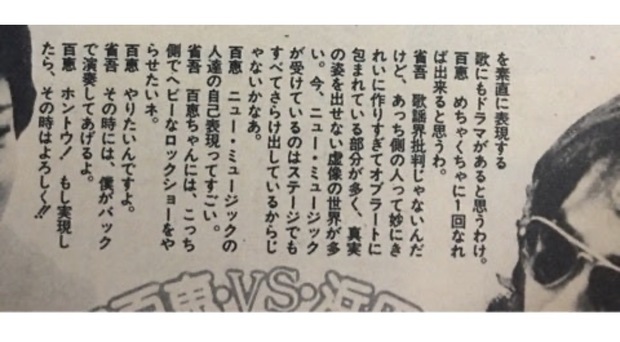 を素直に表現する
歌にもドラマがあると思うわけ。
百恵　めちゃくちゃに1回なれ
ば出来ると思うわ。
省吾　歌謡界批判じゃないんだ
けど、あっち側の人って妙にき
れいに作りすぎてオブラートに
包まれている部分が多く、真実
の姿を出せない虚像の世界が多
い。今、ニュー・ミュージック
が受けているのはステージでも
すべてさらけ出しているからじ
ゃないかなあ。
百恵　ニュー・ミュージックの
人達の自己表現ってすごい。
省吾　百恵ちゃんには、こっち
側でヘビーなロックショーをや
らせたいネ。
百恵　やりたいんですよ。
省吾　その時には、僕がバック
で演奏してあげるよ。
百恵　ホントウ！　もし実現し
たら、その時はよろしく!!
百恵・VS・浜